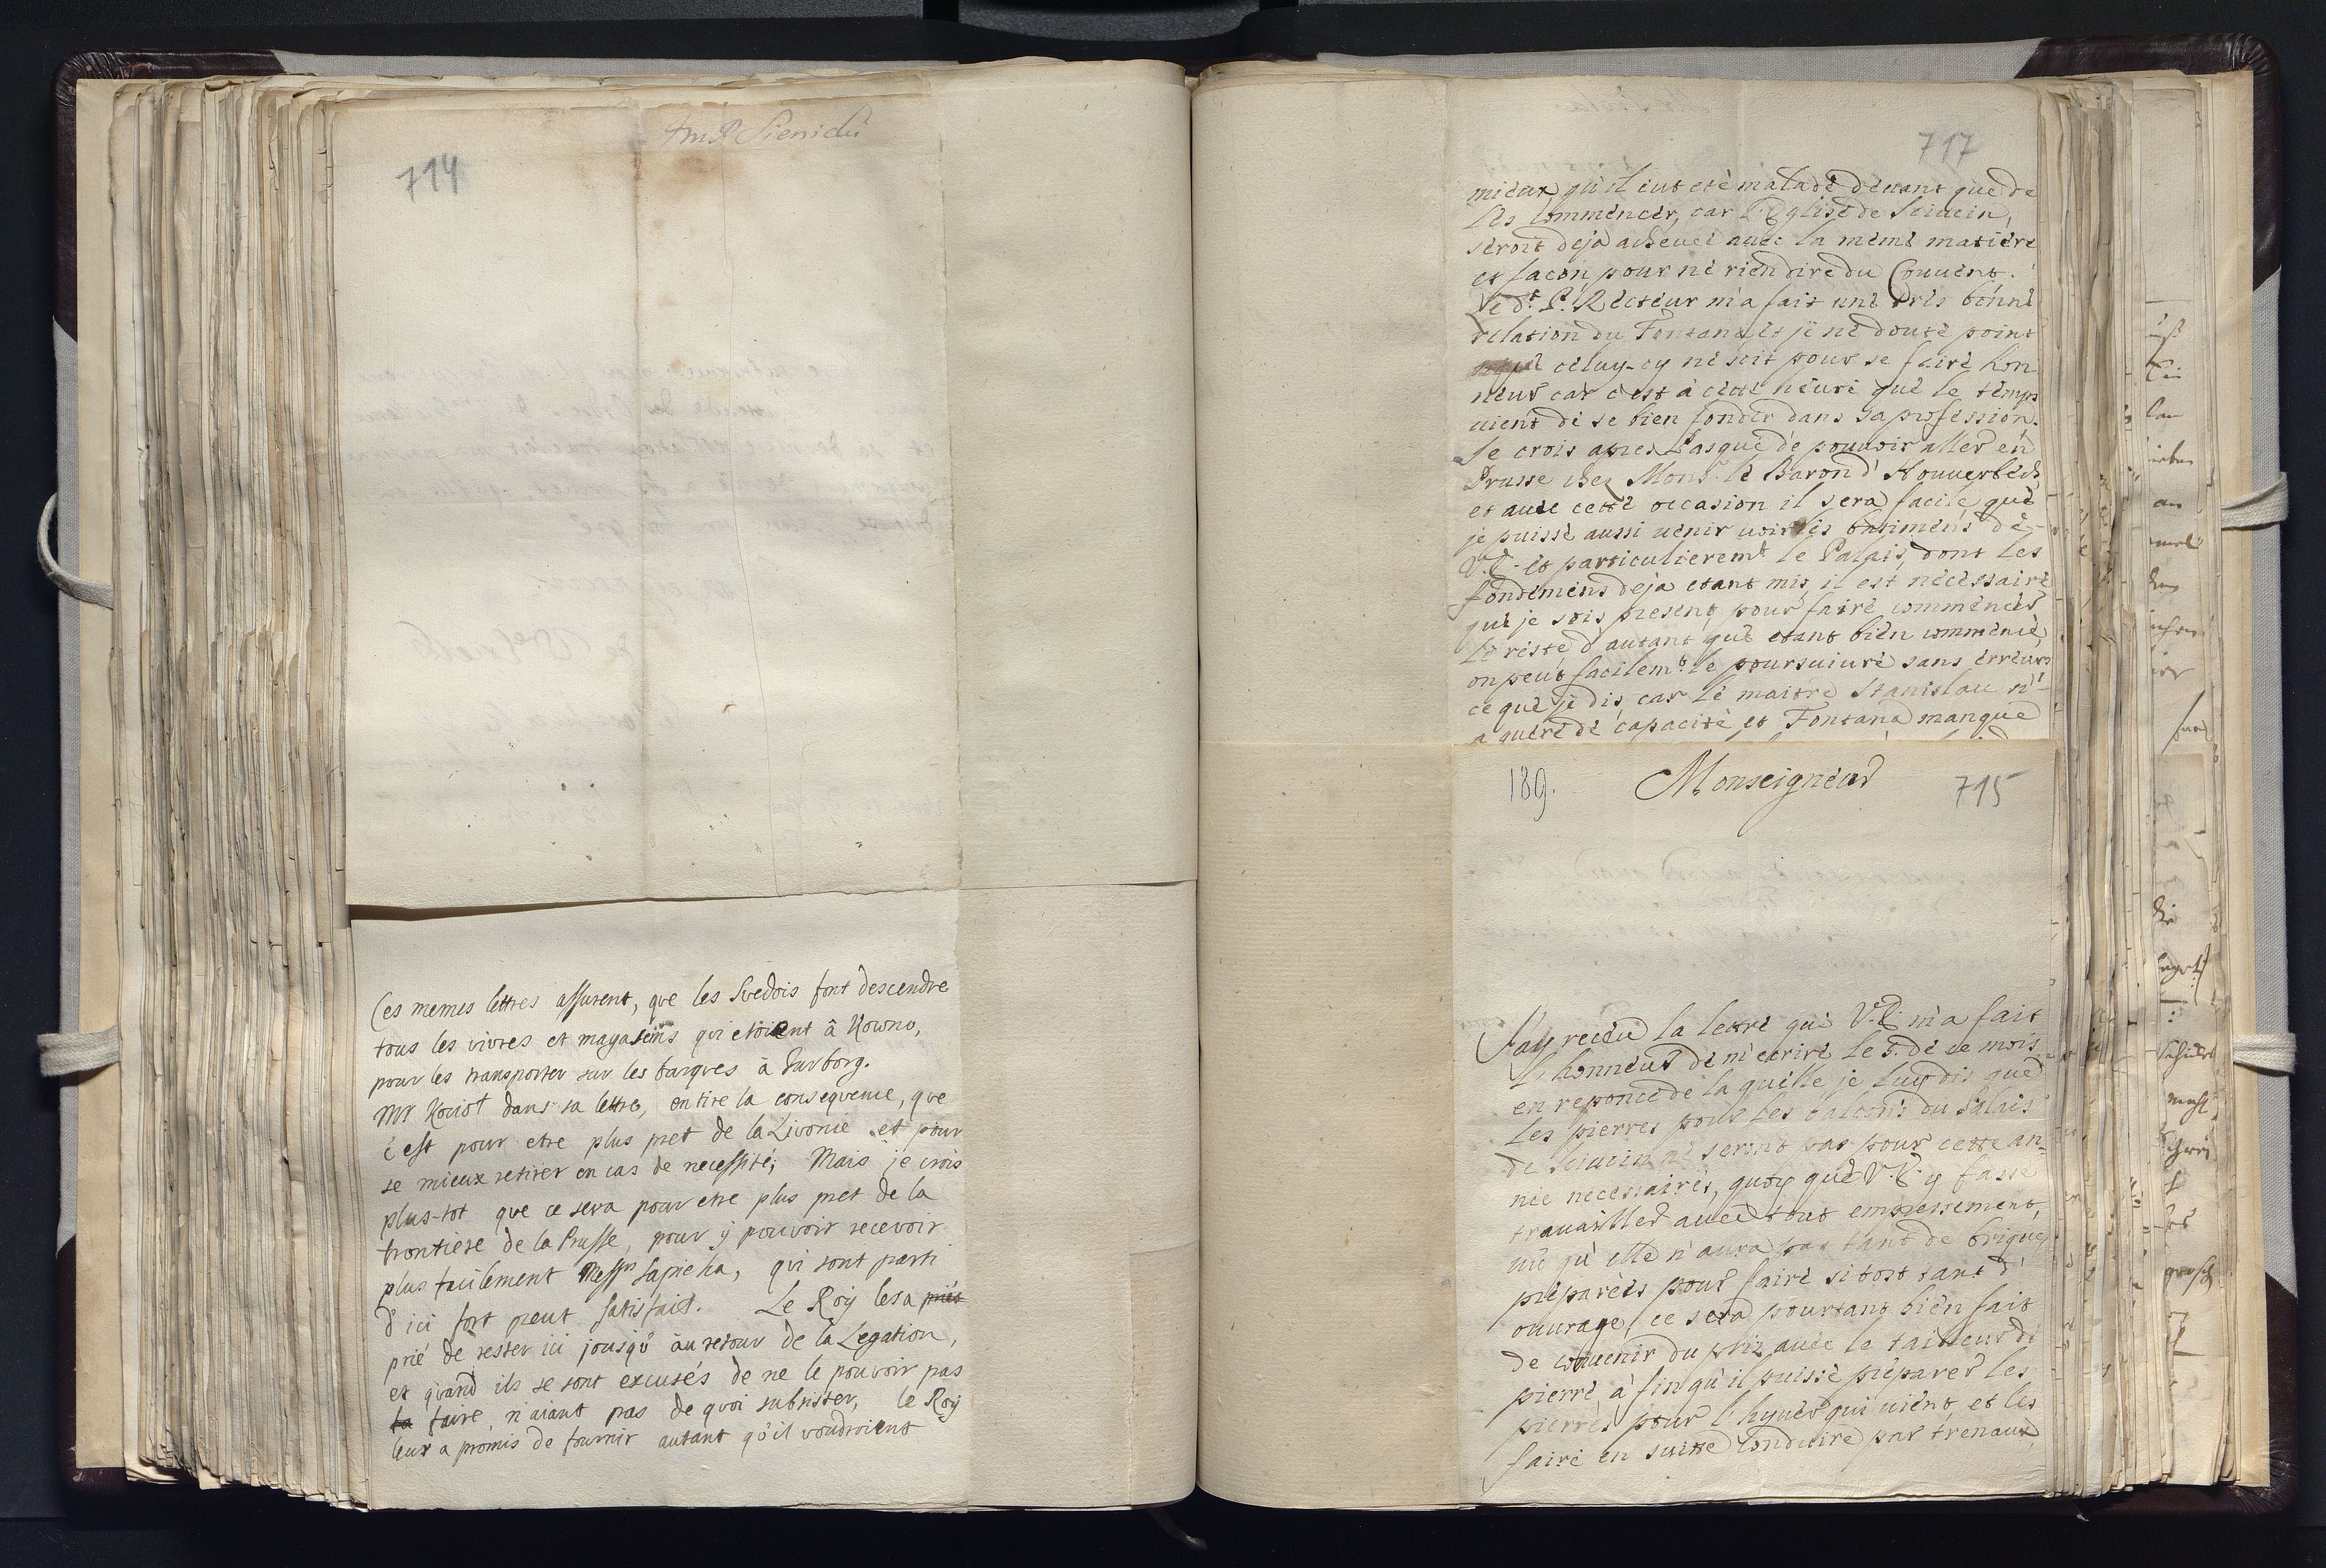 714
Ces memes lettres assurent, que les Svedois font descendre
tous les vivres et magasins qui etoient â Kowno,
pour les transporter sur les barques â Jurborg.
Mr Kociot dans sa lettre, en tire la consequence, que
c'est pour etre plus pret de la Livonie et pour
se mieux retirer en cas de necessité; Mais je crois
plus-tot que ce sera pour etre plus pret de la
frontiere de la Prusse, pour ÿ pouvoir recevoir
plus facilement Messrs Sapieha, qui sont parti
d'ici fort peut satisfaict. Le Roÿ les a priés
prié de rester ici jousqu' âu retour de la Legation,
et quand ils se sont excusés de ne le pouvoir pas
la faire, n'aiant pas de quoi subsister, le Roÿ
leux a promis de fournir autant qu'il voudroient
717
mieux, qu'il eut eté malade devant que de
les commencer, car l'Eglise de Sciucin,
seroit deja achevée avec la méme matiére
et facon pour ne rien dire du Couvent.
Le dt P. Recteur m'a fait une trés bonne
relation du Fontana, et je ne doute point
que celuy-cy ne soit pour se faire hon-
neur car c'est à cette heure que le temps
vient de se bien fonder dans sa profession.
Je crois apres Pasque de pouvoir aller en
Prusse chez Monsr le Baron d'Houverbech
et avec cette occasion il sera facile que
je puisse aussi venir voir les batimens de
V.E. et particulieremt le Palais, dont les
fondemens deja etant mis, il est nécessaire
que je sois present, pour faire commencer
le reste d'autant que etant bien commencé,
on peut facilemt le poursuivre sans erreurs
ce que je dis, car le maitre Stanislau n'
a guere de capacité et Fontana manque
189. Monseigneur 715
J'ay receu la lettre que V.E. m'a fait
l'honneur de m'ecrire le 5. de ce mois
en reponce de laquelle, je luy dis que
les pierres pour les balcons du Palais
de Sciucin ne seront pas pour cette an-
née necessaires, quoy que V.E. y fasse
travailler avec tout empressement,
vû qu'elle n'aura pas tant de briques
préparées pour faire si tost tant d'
ouvrage, ce sera pourtant bien fait
de convenir du prix avec le tailleur de
pierre à fin qu'il puisse préparer les
pierres pour l'hyver qui vient, et les
faire en suitte conduire par trenaux,